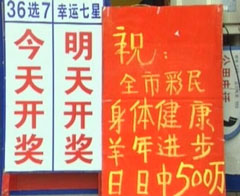 36选7
今天开奖
幸运七星
明天开奖
祝：
全市彩民
身体健康
羊年进步
日日中500万